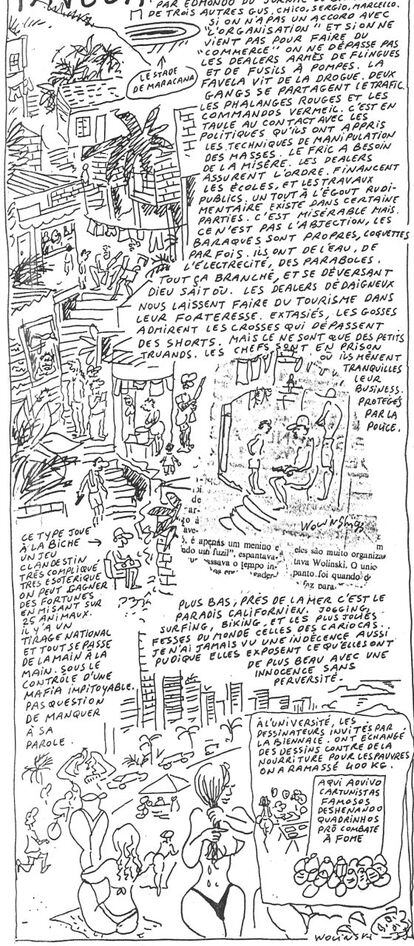 PAR EDMONDO DU
DE TROIS AUTRES GUS, CHICO, SERGIO, MARCELLO.
SI ON N'A PAS UN ACCORD AVEC
"L'ORGANISATION" ET SI ON NE
VIENT PAS POUR FAIRE DU
"COMMERCE" ON NE DÉPASSE PAS
LES DEALERS ARMÉS DE FLINGUES
ET DE FUSILS À POMPES. LA
FAVELA VIT DE LA DROGUE. DEUX
GANGS SE PARTAGENT LE TRAFIC.
LES PHALANGES ROUGES ET LES
COMMANDOS VERMEIL. C'EST EN
TAULE AU CONTACT AVEC LES
POLITIQUES QU'ILS ONT APPRIS
LES TECHNIQUES DE MANIPULATION
DES MASSES. LE FRIC A BESOIN
DE LA MISÈRE. LES DEALERS
ASSURENT L'ORDRE. FINANCENT
LES ÉCOLES, ET LES TRAVAUX
PUBLICS. UN TOUT À L'ÉGOUT RUDI-
MENTAIRE EXISTE DANS CERTAINE
PARTIES. C'EST MISÉRABLE MAIS
CE N'EST PAS L'ABJECTION, LES
BARAQUES SONT PROPRES, COQUETTES
PARFOIS. ILS ONT DE L'EAU, DE
L'ÉLECTRICITÉ, DES PARABOLES.
TOUT ÇA BRANCHÉ, ET SE DÉVERSANT
DIEU SAIT OÙ. LES DEALERS DÉDAIGNEUX
NOUS LAISSENT FAIRE DU TOURISME DANS
LEUR FORTERESSE. EXTASIÉS, LES GOSSES
ADMIRENT LES CROSSES QUI DÉPASSENT
DES SHORTS. MAIS CE NE SONT QUE DES PETITS
TRUANDS. LES CHEFS SONT EN PRISON
OÙ ILS MÈNENT
TRANQUILLES
LEUR
BUSINESS.
PROTÉGÉS
PAR LA
POLICE.
LE STADE
DE MARACANA
WOLINSKI 93
é apenas um menino e
do um fuzil", espantava-
ssava o tempo in-
eles são muito organiza-
tava Wolinski. O unic
ponto foi quando d
foz para
CE TYPE JOUE
À LA BICHE
UN JEU
CLANDESTIN
TRÈS COMPLIQUÉ
TRÈS ESOTÉRIQUE
ON PEUT GAGNER
DES FORTUNES
EN MISANT SUR
25 ANIMAUX.
IL Y A UN
TIRAGE NATIONAL
ET TOUT SE PASSE
DE LA MAIN À LA
MAIN. SOUS LE
CONTRÔLE D'UNE
MAFIA IMPITOYABLE.
PAS QUESTION
DE MANQUER
À SA
PAROLE.
PLUS BAS, PRÈS DE LA MER C'EST LE
PARADIS CALIFORNIEN. JOGGING,
SURFING, BIKING, ET LES PLUS JOLIES
FESSES DU MONDE CELLES DES CARIOCAS.
JE N'AI JAMAIS VU UNE INDÉCENCE AUSSI
PUDIQUE ELLES EXPOSENT CE QU'ELLES ONT
DE PLUS BEAU AVEC UNE
INNOCENCE SANS
PERVERSITÉ.
À L'UNIVERSITÉ, LES
DESSINATEURS INVITÉS PAR
LA BIENNALE. ONT ÉCHANGÉ
DES DESSINS CONTRE DE LA
NOURRITURE POUR LES PAUVRES
ON A RAMASSÉ 400 KG.
AQUI AO VIVO
CARTUNISTAS
FAMOSOS
DESHENANDO
QUADRINHOS
PRÔ COMBATE
À FOME
WOLINSKI